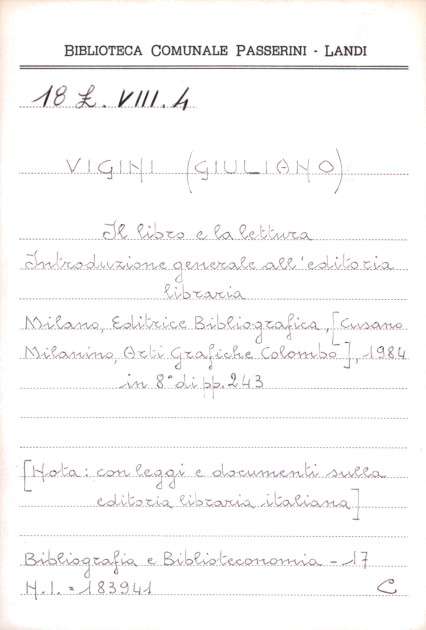 BIBLIOTECA COMUNALE PASSERINI - LANDI
18 £. VIII. 4
VIGINI (GIULIANO)
Il libro e la lettura
Introduzione generale all'editoria
libraria
Milano, Editrice Bibliografica, [Cusano
Milanino, Arti Grafiche Colombo], 1984
in 8° di pp. 243
[Nota: con leggi e documenti sulla
editoria libraria italiana]
Bibliografia e Biblioteconomia - 17
N.I. = 183941 C